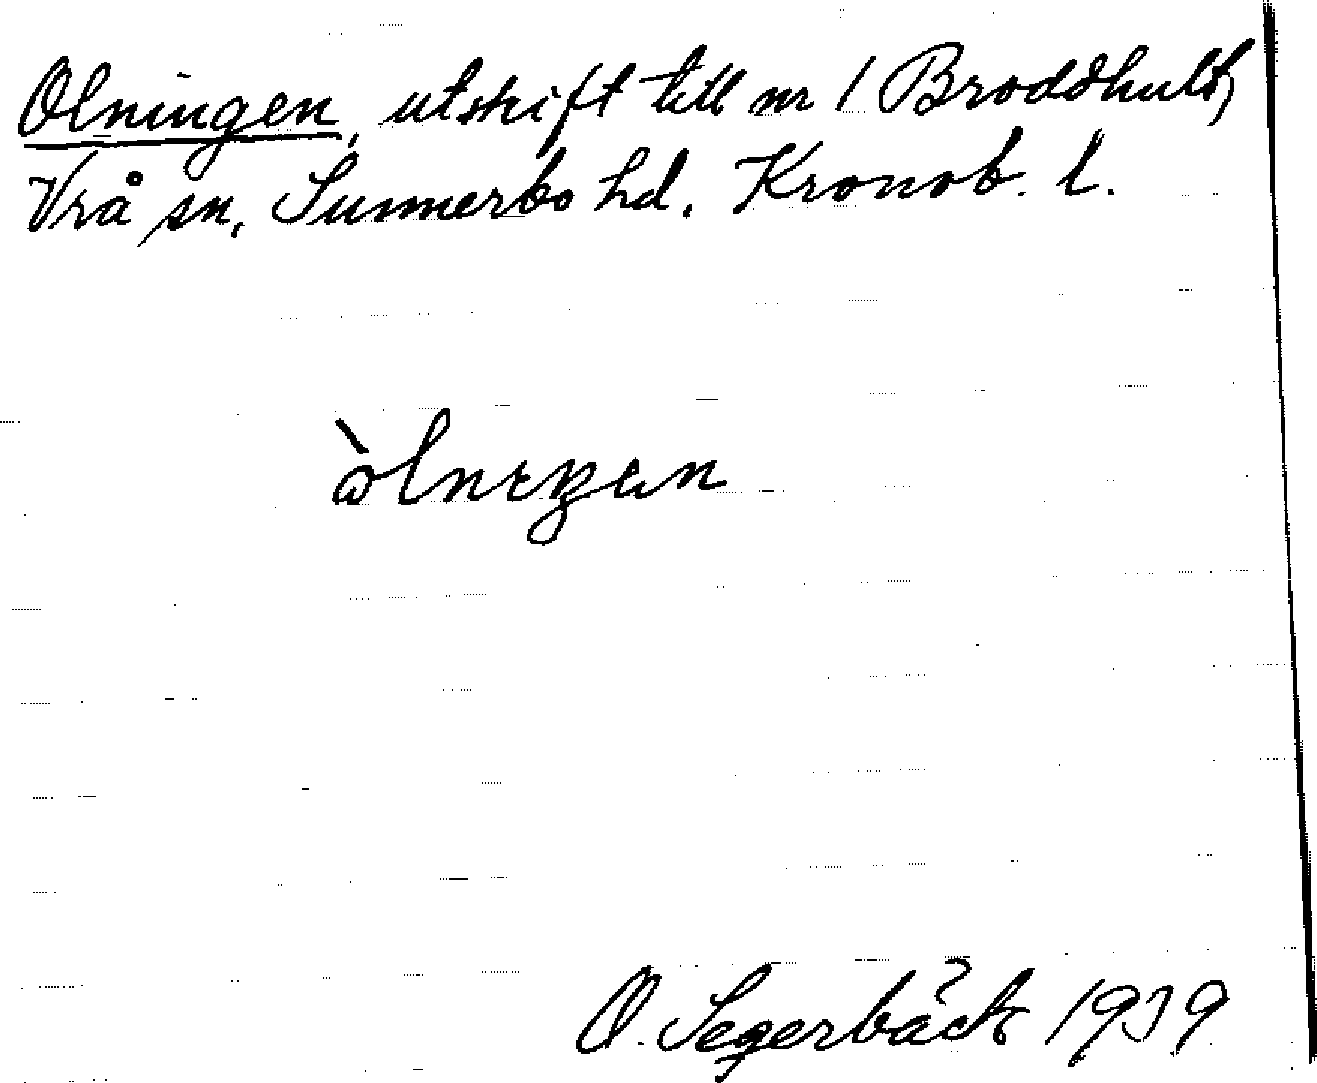 Olningen, utskift till nr 1 Broddhult,
Vrå sn, Sunnerbo hd, Kronob. l.
òlnıŋen
O. Segerbäck 1939